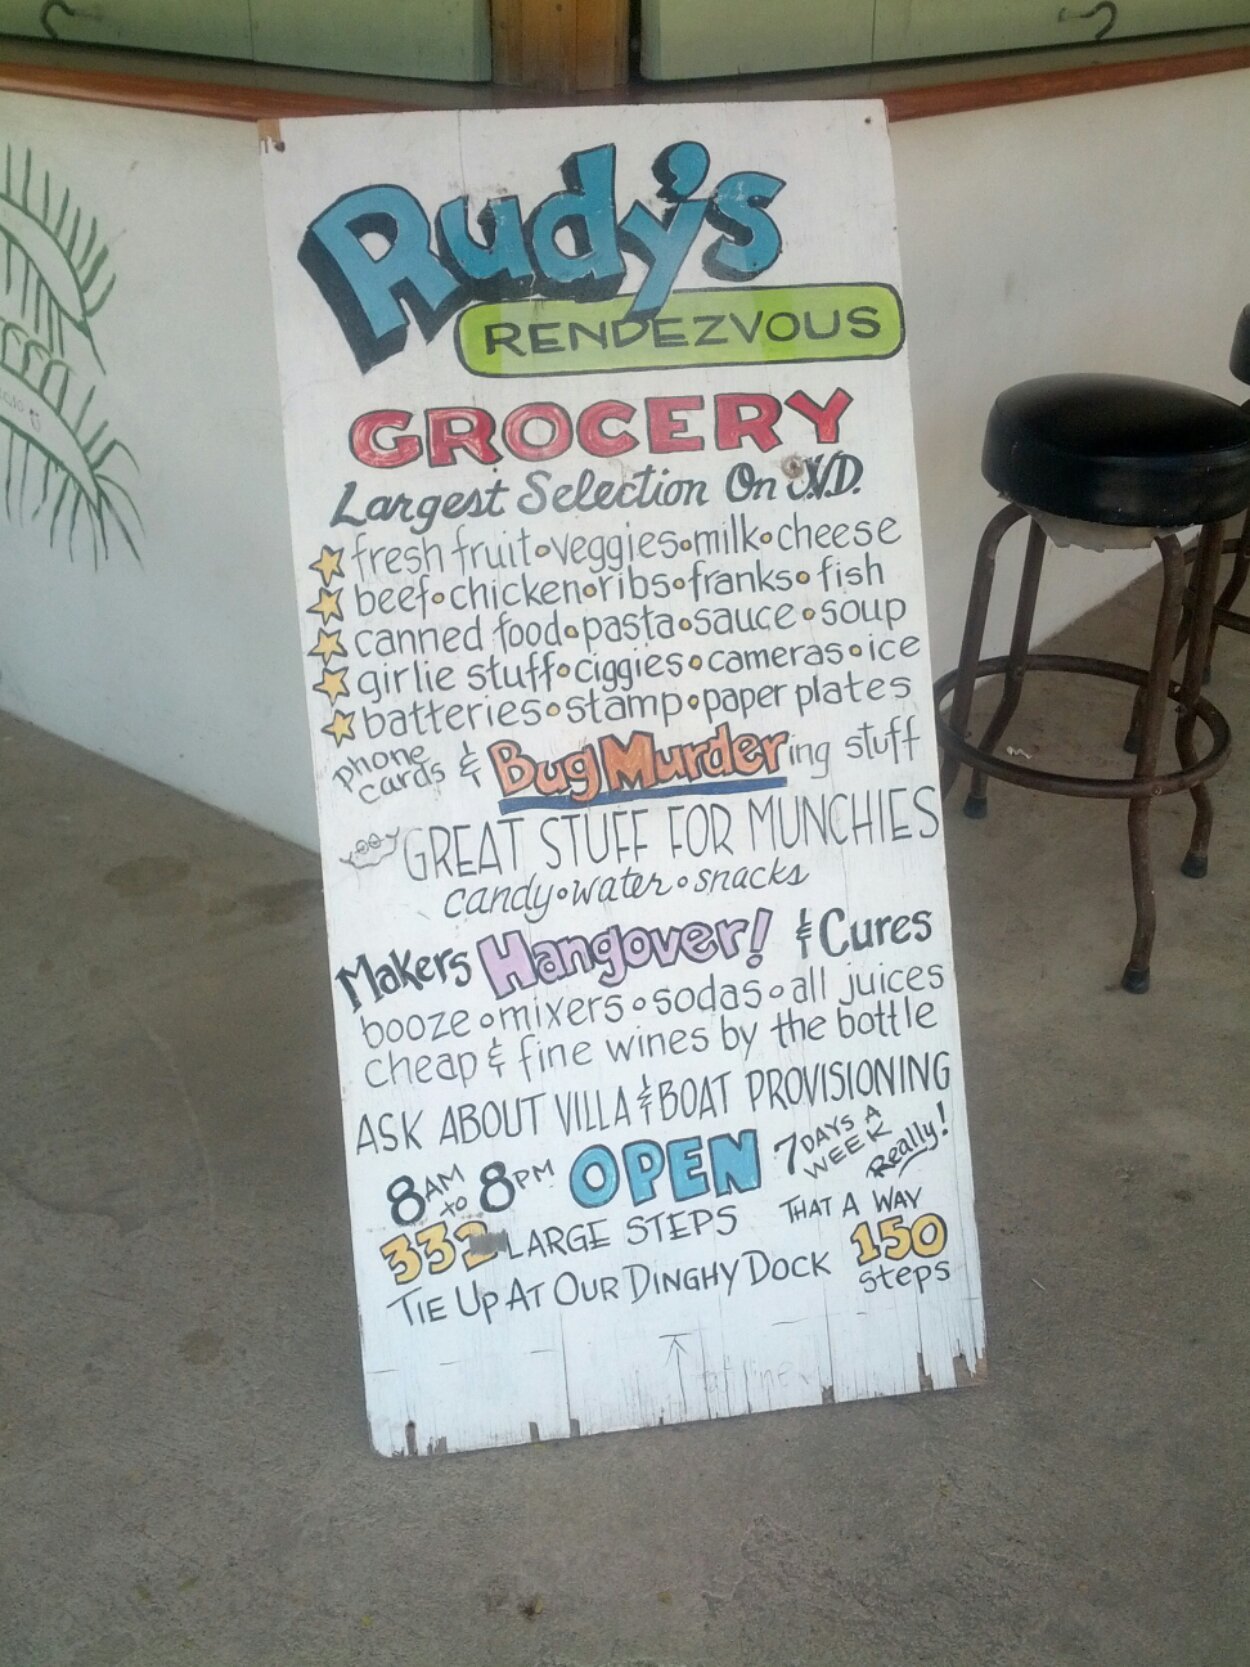 Rudy's
RENDEZVOUS
GROCERY
Largest Selection On J.V.D.
fresh fruit•veggies•milk•cheese
beef•chicken•ribs•franks•fish
canned food•pasta•sauce•soup
girlie stuff•ciggies•cameras•ice
batteries•stamp•paper plates
phone cards & Bug Murdering stuff
GREAT STUFF FOR MUNCHIES
candy•water•snacks
Makers Hangover! & Cures
booze•mixers•sodas•all juices
cheap & fine wines by the bottle
ASK ABOUT VILLA & BOAT PROVISIONING
8AM to 8PM OPEN 7 DAYS A WEEK Really!
332 LARGE STEPS THAT A WAY
TIE UP AT OUR DINGHY DOCK 150 steps